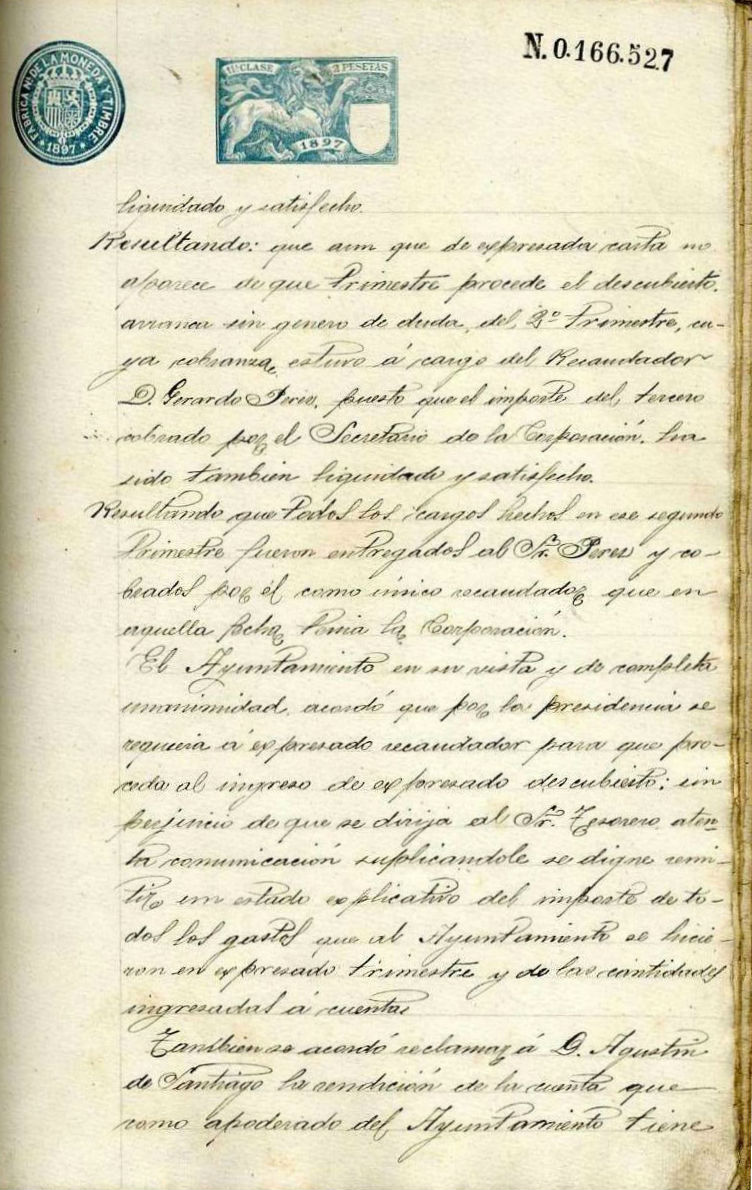 FABRICA Nl. DE LA MONEDA Y TIMBRE
* 1897 *
11ª CLASE 2 PESETAS
1897
N.0.166.527
liquidado y satisfecho.
Resultando: que aun que de expresada carta no
aparece de que trimestre procede el descubierto,
arranca sin genero de duda, del 2º trimestre, cu-
ya cobranza, estuvo á cargo del Recaudador
D. Gerardo Perez, puesto que el importe del tercero
cobrado por el Secretario de la Corporación, ha
sido tambien liquidado y satisfecho.
Resultando que todos los cargos hechos en ese segundo
trimestre fueron entregados al Sr. Perez y co-
brados por él como único recaudador que en
aquella fecha tenia la Corporación.
El Ayuntamiento en su vista y de completa
unanimidad, acordó que por la presidencia se
requiera á expresado recaudador para que pro-
ceda al ingreso de expresado descubierto; sin
perjuicio de que se dirija al Sr. Tesorero, aten-
ta comunicación suplicandole se digne remi-
tir un estado explicativo del importe de to-
dos los gastos que al Ayuntamiento se hicie-
ron en expresado trimestre y de las cantidades
ingresadas á cuenta.
Tambien se acordó reclamar á D. Agustin
de Santiago la rendición de la cuenta que
como apoderado del Ayuntamiento tiene